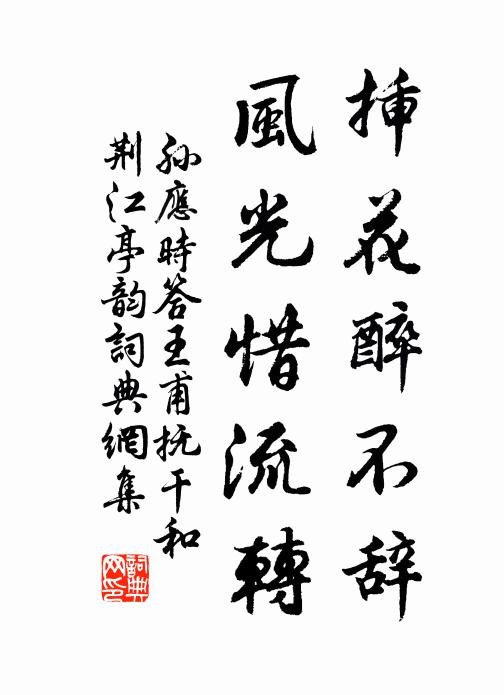 挿花醉不辞
風光惜流轉
孙應時答王甫抚干和
荆江亭韵詞典網集
詞典网印